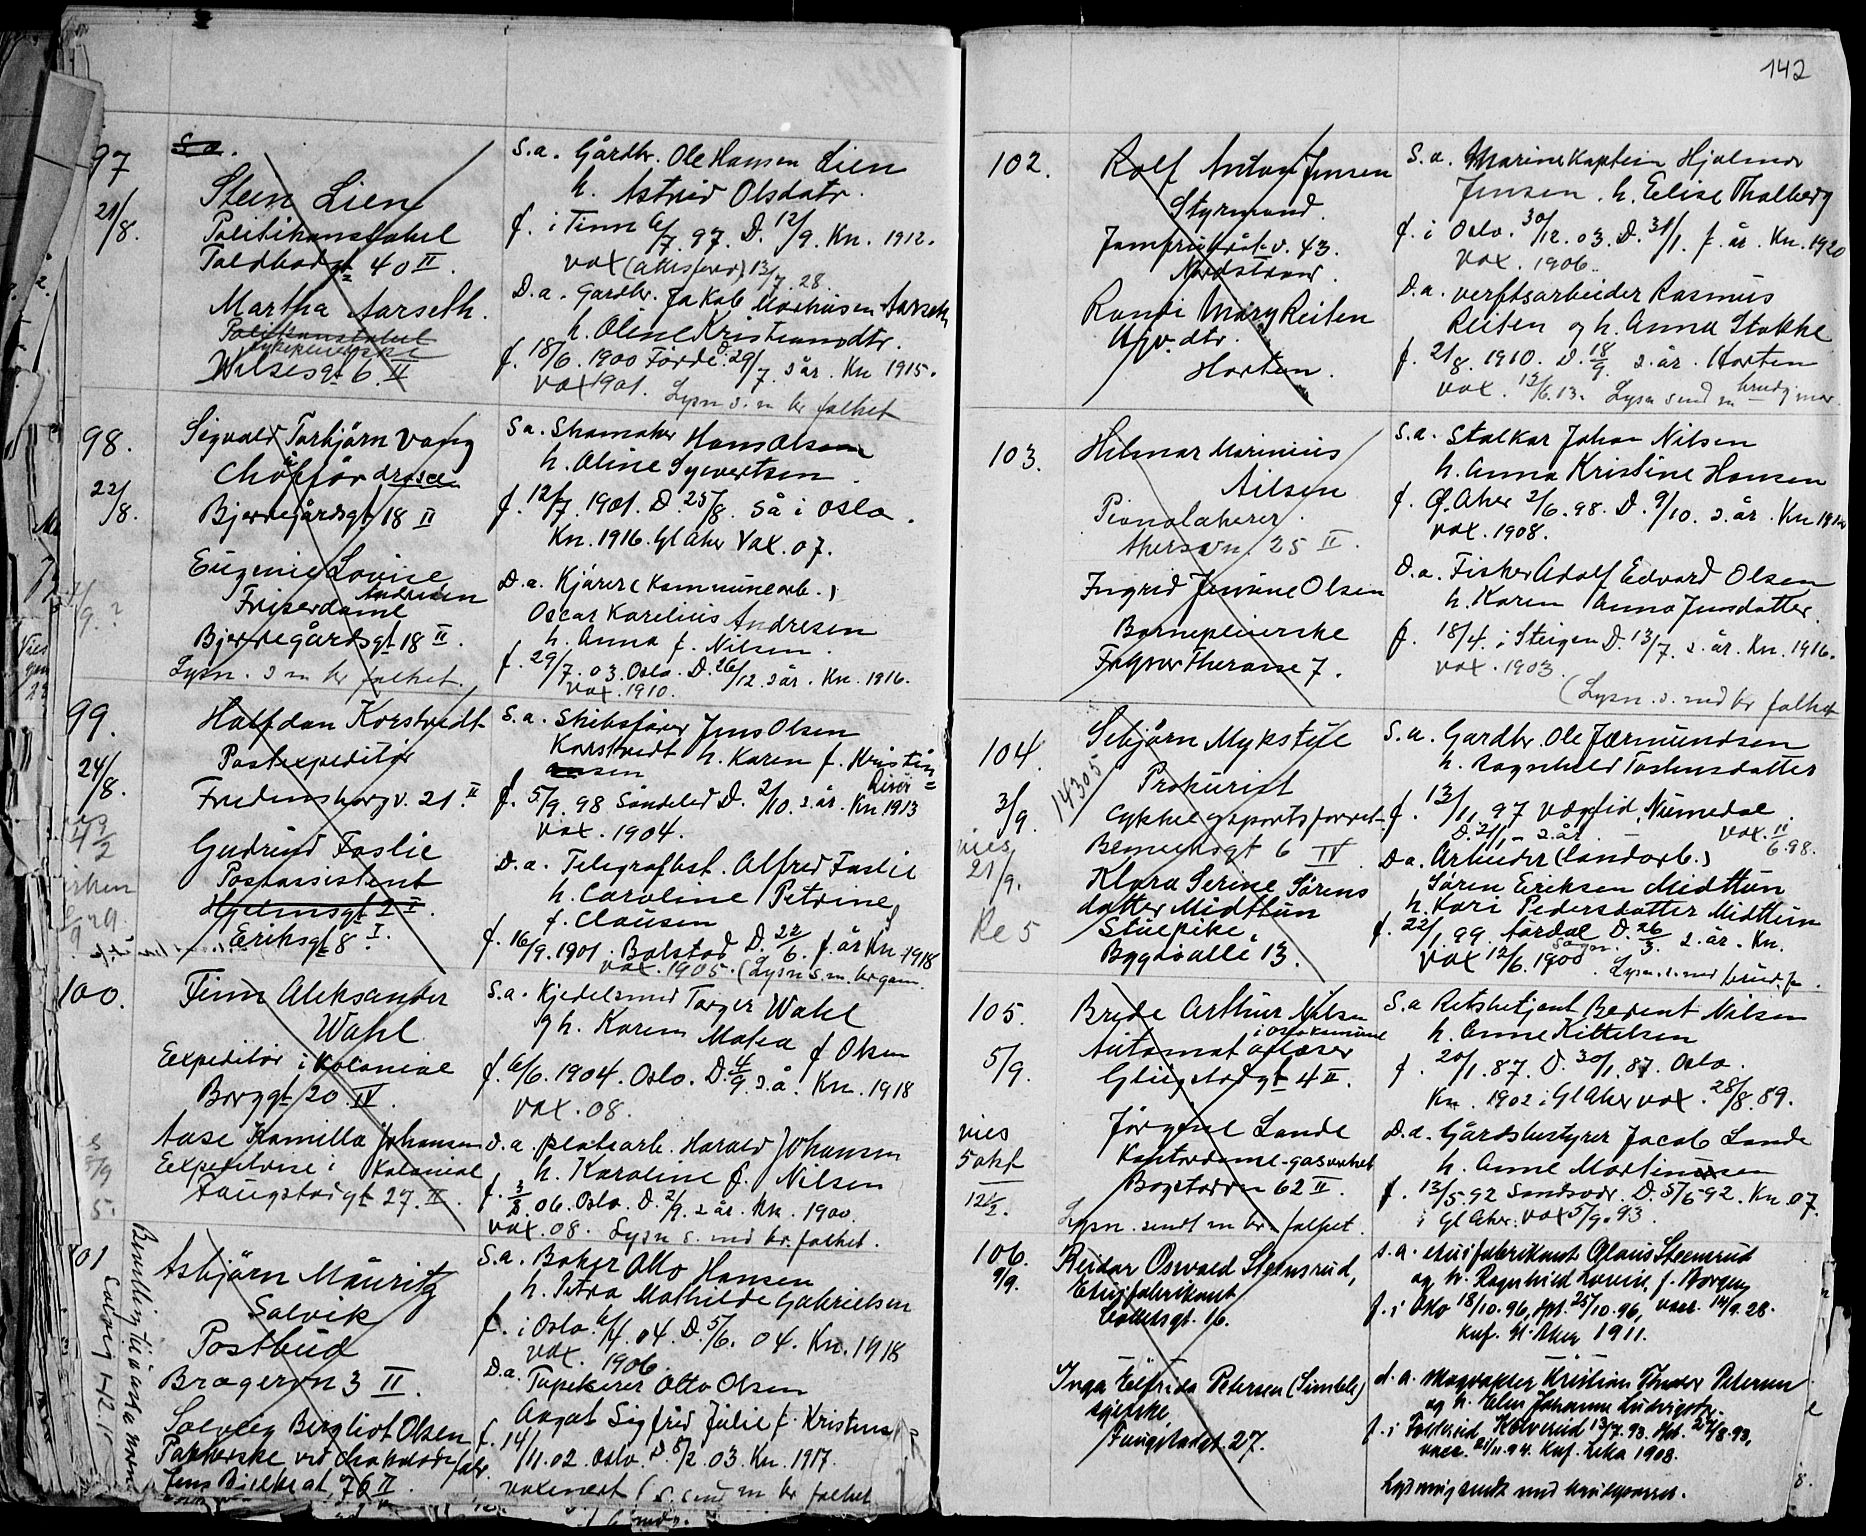 142
97
21/8.
S.a.
Stein Lien
Politikonstabel
Toldbodgt 40 II.
Martha Aarseth.
Politikonstabel
Sykepleierske
Wilsesgt 6 II
S.a. Gårdbr. Ole Hansen Lien
h. Astrid Olsdatr.
f. i Tinn 6/7.97. D. 12/9. Kn. 1912.
vax (attesterer) 13/7.28.
D.a. Gardbr. Jakob Aarseth
h. Oline Kristiansdtr.
f. 18/6. 1900 Förde. D. 29/7. s år. Kn 1915.
vax 1901. Lysn s. m br folket
98.
22/8.
Sigvald Torbjörn Vang
Chåfför drosce
Bjerregårdsgt 18 II
Eugenie Lovise
Andresen
Friserdame
Bjerregårdsgt 18 II.
Lysn. s m br folket.
S.a. Skomaker Hans Olsen
h. Oline Syvertsen.
f. 12/7. 1901. D. 25/8. Så i Oslo.
Kn. 1916. Gl Aker Vax. 07.
D.a. Kjörer (Kommunearb.)
Oscar Karelius Andresen
h. Anna f. Nilsen.
f. 29/7. 03. Oslo. D. 26/12. s år. Kn. 1916.
vax. 1910.
99.
24/8.
Halfdan Korstvedt
Postexpeditör
Fredensborgv. 21. II
Gudrund Faslie
Postassistent
Hjelmsgt 2 I.
Eriksgt 8 I.
S.a. Skibsförer Jens Olsen
Korstvedt h. Karen f. Kristiansen
Risör
f. 5/9. 98 Söndeled D. 2/10. s år. Kn 1913
vax. 1904.
D.a. Telegrafbst. Alfred Faslie
h. Caroline Petrine
f. Clausen
f. 16/9. 1901. Bolstad D. 22/6. f. år Kn. 1918
vax. 1905. (Lysn s. m. brgom.
100.
Finn Aleksander
Wahl
Expeditör i Kolonial
Borggt 20. IV.
Aase Kamilla Johansen
Expeditrise i Kolonial
Tougstadgt 27. II.
S.a. Kjedelsmed Torger Wahl
g h. Karen Matea f Olsen
f. 6/6. 1904. Oslo. D. 4/9 s.å. Kn. 1918
vax. 08.
D.a. platearb. Harald Johansen
h. Karoline f. Nilsen
f. 3/5. 06. Oslo. D. 2/9. s år. Kn. 1900.
vax. 08. Lysn s. med br. folket.
101
Asbjörn Mauritz
Solvik
Postbud
Bragern 3 II.
Solveig Bergliot Olsen
Pakkerske ved chokoladefabr.
Jens Bjelkegt 76 II.
S.a. Baker Otto Hansen
h. Petra Mathilde Gabrielsen
f. i Oslo. 6/4. 04. D. 5/6. 04. Kn. 1918
vax. 1906.
D.a. Tapetserer Otto Olsen
Aagot Sigfrid Julie f. Kristens
f. 14/11.02. Oslo. D. 8/2. 03. Kn. 1917.
vaxinert (s. send m br folket
102.
Rolf Anton Jensen
Styrmand.
Jomfrubråt.v. 43.
Nordstrand.
Randi Mary Reiten
Hjv. dtr.
Horten.
S.a. Marinekaptein Hjalmar
Jensen. h. Elise Thalberg
f. i Oslo. 30/12. 03. D. 31/1. f. år. Kn. 1920
vax. 1906.
D.a. verftsarbeider Rasmus
Reiten og h. Anna Stokke
f. 21/8. 1910. D. 18/9. s. år. Horten
vax. 13/6.13. Lysn send m brudg mor.
103.
Hilmar Marinius
Nilsen
Pianolakerer.
Theresvn. 25 II.
Ingrid Jensine Olsen
Barnepleierske
Frogner Therasse 7.
S.a. Stalkar Johan Nilsen
h. Anna Kristine Hansen
f. Ø. Aker 2/6. 98. D. 9/10. s. år. Kn 1912
vax. 1908.
D.a. Fisker Adolf Edvard Olsen
h. Karen Anna Jensdatter.
f. 18/4. i Steigen D. 13/7. s. år. Kn. 1916.
vax. 1903.
(Lysn. s. med br folket
104.
3/9.
14305
vies
21/9.
Re 5
Sebjörn Mykstul
Prokurist
Cykkel gsportsforret-
Bernersgt 6 IV
Klara Serine Sörens
datter Midttun
Stuepike,
Bygdöalle 13.
S.a. Gardbr. Ole Færmundsen
h. Ragnhild Tostensdatter
f. 13/11. 97 Vægtid, Numedal.
D. 21/1 - s. år. vax. 11/6.98.
D.a. Arbeider (landarb.)
Sören Eriksen Midttun
h. Kari Pedersdatter Midttun
f. 22/1. 99. Aardal D. 26/3. s. år. Kn.
Sogn.
vax 12/6. 1900. Lysn. s. med brud. f.
105.
5/9.
vies
5 okt
12 1/2.
Brede Arthur Nilsen
i Oslo kommune
Automat avlæser
Glügstadgt 4 II.
Jörgine Lande
Kontordame-gasverket
Bogstadvn 62 II.
Lysn. sendt m br. folket.
S.a Retsbetjent Berent Nilsen
h. Anne Kittelsen
f. 20/1. 87. D. 30/1. 87. Oslo.
Kn. 1902 i Gl Aker vax. 28/8. 89.
D.a. Gårdsbestyrer Jacob Lande
h. Anne Martinusen
f. 13/5. 92 Sandsvær. D. 5/6 92. Kn 07.
i Gl Aker. vax 5/9. 93.
106.
9/9.
Reidar Oswald Stensrud,
Etuifabrikant
Colletsgt. 16.
Inga Elfrida Petersen (Simble)
syerske,
Fougstadgt. 27.
s. a. etuifabrikant Olaus Steensrud
og h. Ragnhild Lovise, f. Borgen
f. i Oslo 18/10. 96, dpt. 25/10. 96, vacc. 14/9. 28.
knf. Gl. Aker 1911.
d. a. Kristian Petersen
og h. Elen Johanne Ludvigsdtr.
f. i Kolvereid 13/7. 93. dpt. 27/8. 93,
vacc. 21/11. 94. Knf. Leka 1908.
Lysning sendt med brudeparret.